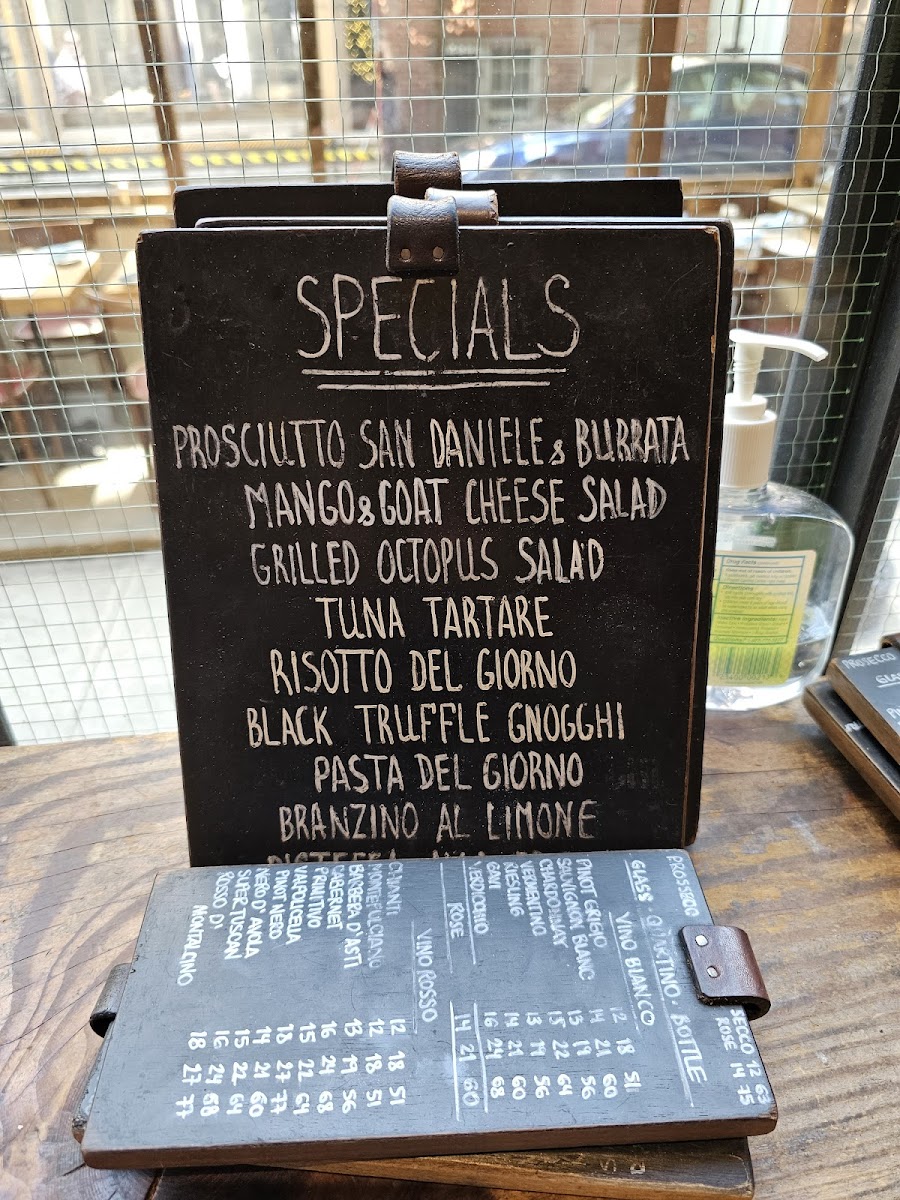 SPECIALS
PROSCIUTTO SAN DANIELE & BURRATA
MANGO & GOAT CHEESE SALAD
GRILLED OCTOPUS SALAD
TUNA TARTARE
RISOTTO DEL GIORNO
BLACK TRUFFLE GNOGGHI
PASTA DEL GIORNO
BRANZINO AL LIMONE
PROSSECO SECCO 12 63
ROSE 14 75
GLASS QUARTINO · BOTTLE
VINO BIANCO
PINOT GRIGIO 12 18 51
SAUVIGNON BLANC 14 21 60
CHARDONNAY 13 19 56
VERMENTINO 15 22 64
RIESLING 13 19 56
GAVI 14 21 60
VERDICCHIO 16 24 68
ROSE 14 21 60
VINO ROSSO
CHIANTI 12 18 51
MONTEPULCIANO 12 18 51
BARBERA D'ASTI 13 19 56
CABERNET 16 24 68
PRIMITIVO 15 22 64
VALPOLICELLA 18 27 77
PINOT NERO 14 21 60
NERO D'AVOLA 15 22 64
SUPER TUSCAN 16 24 68
ROSSO D'
MONTALCINO 18 27 77
PROSECCO
Drug Facts